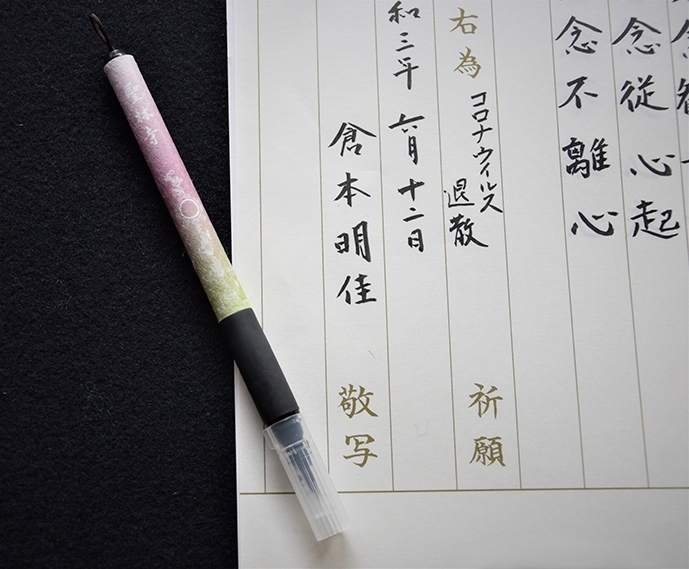 念從心起
念不離心
右為 コロナウイルス退散 祈願
和三年 六月十二日
倉本明佳 敬写
雲林寺